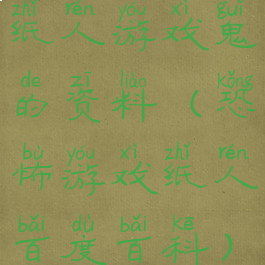 zhǐ rén yóu xì guǐ
纸人游戏鬼
de zī liào kǒng
的资料(恐
bù yóu xì zhǐ rén
怖游戏纸人
bǎi dù bǎi kē
百度百科)